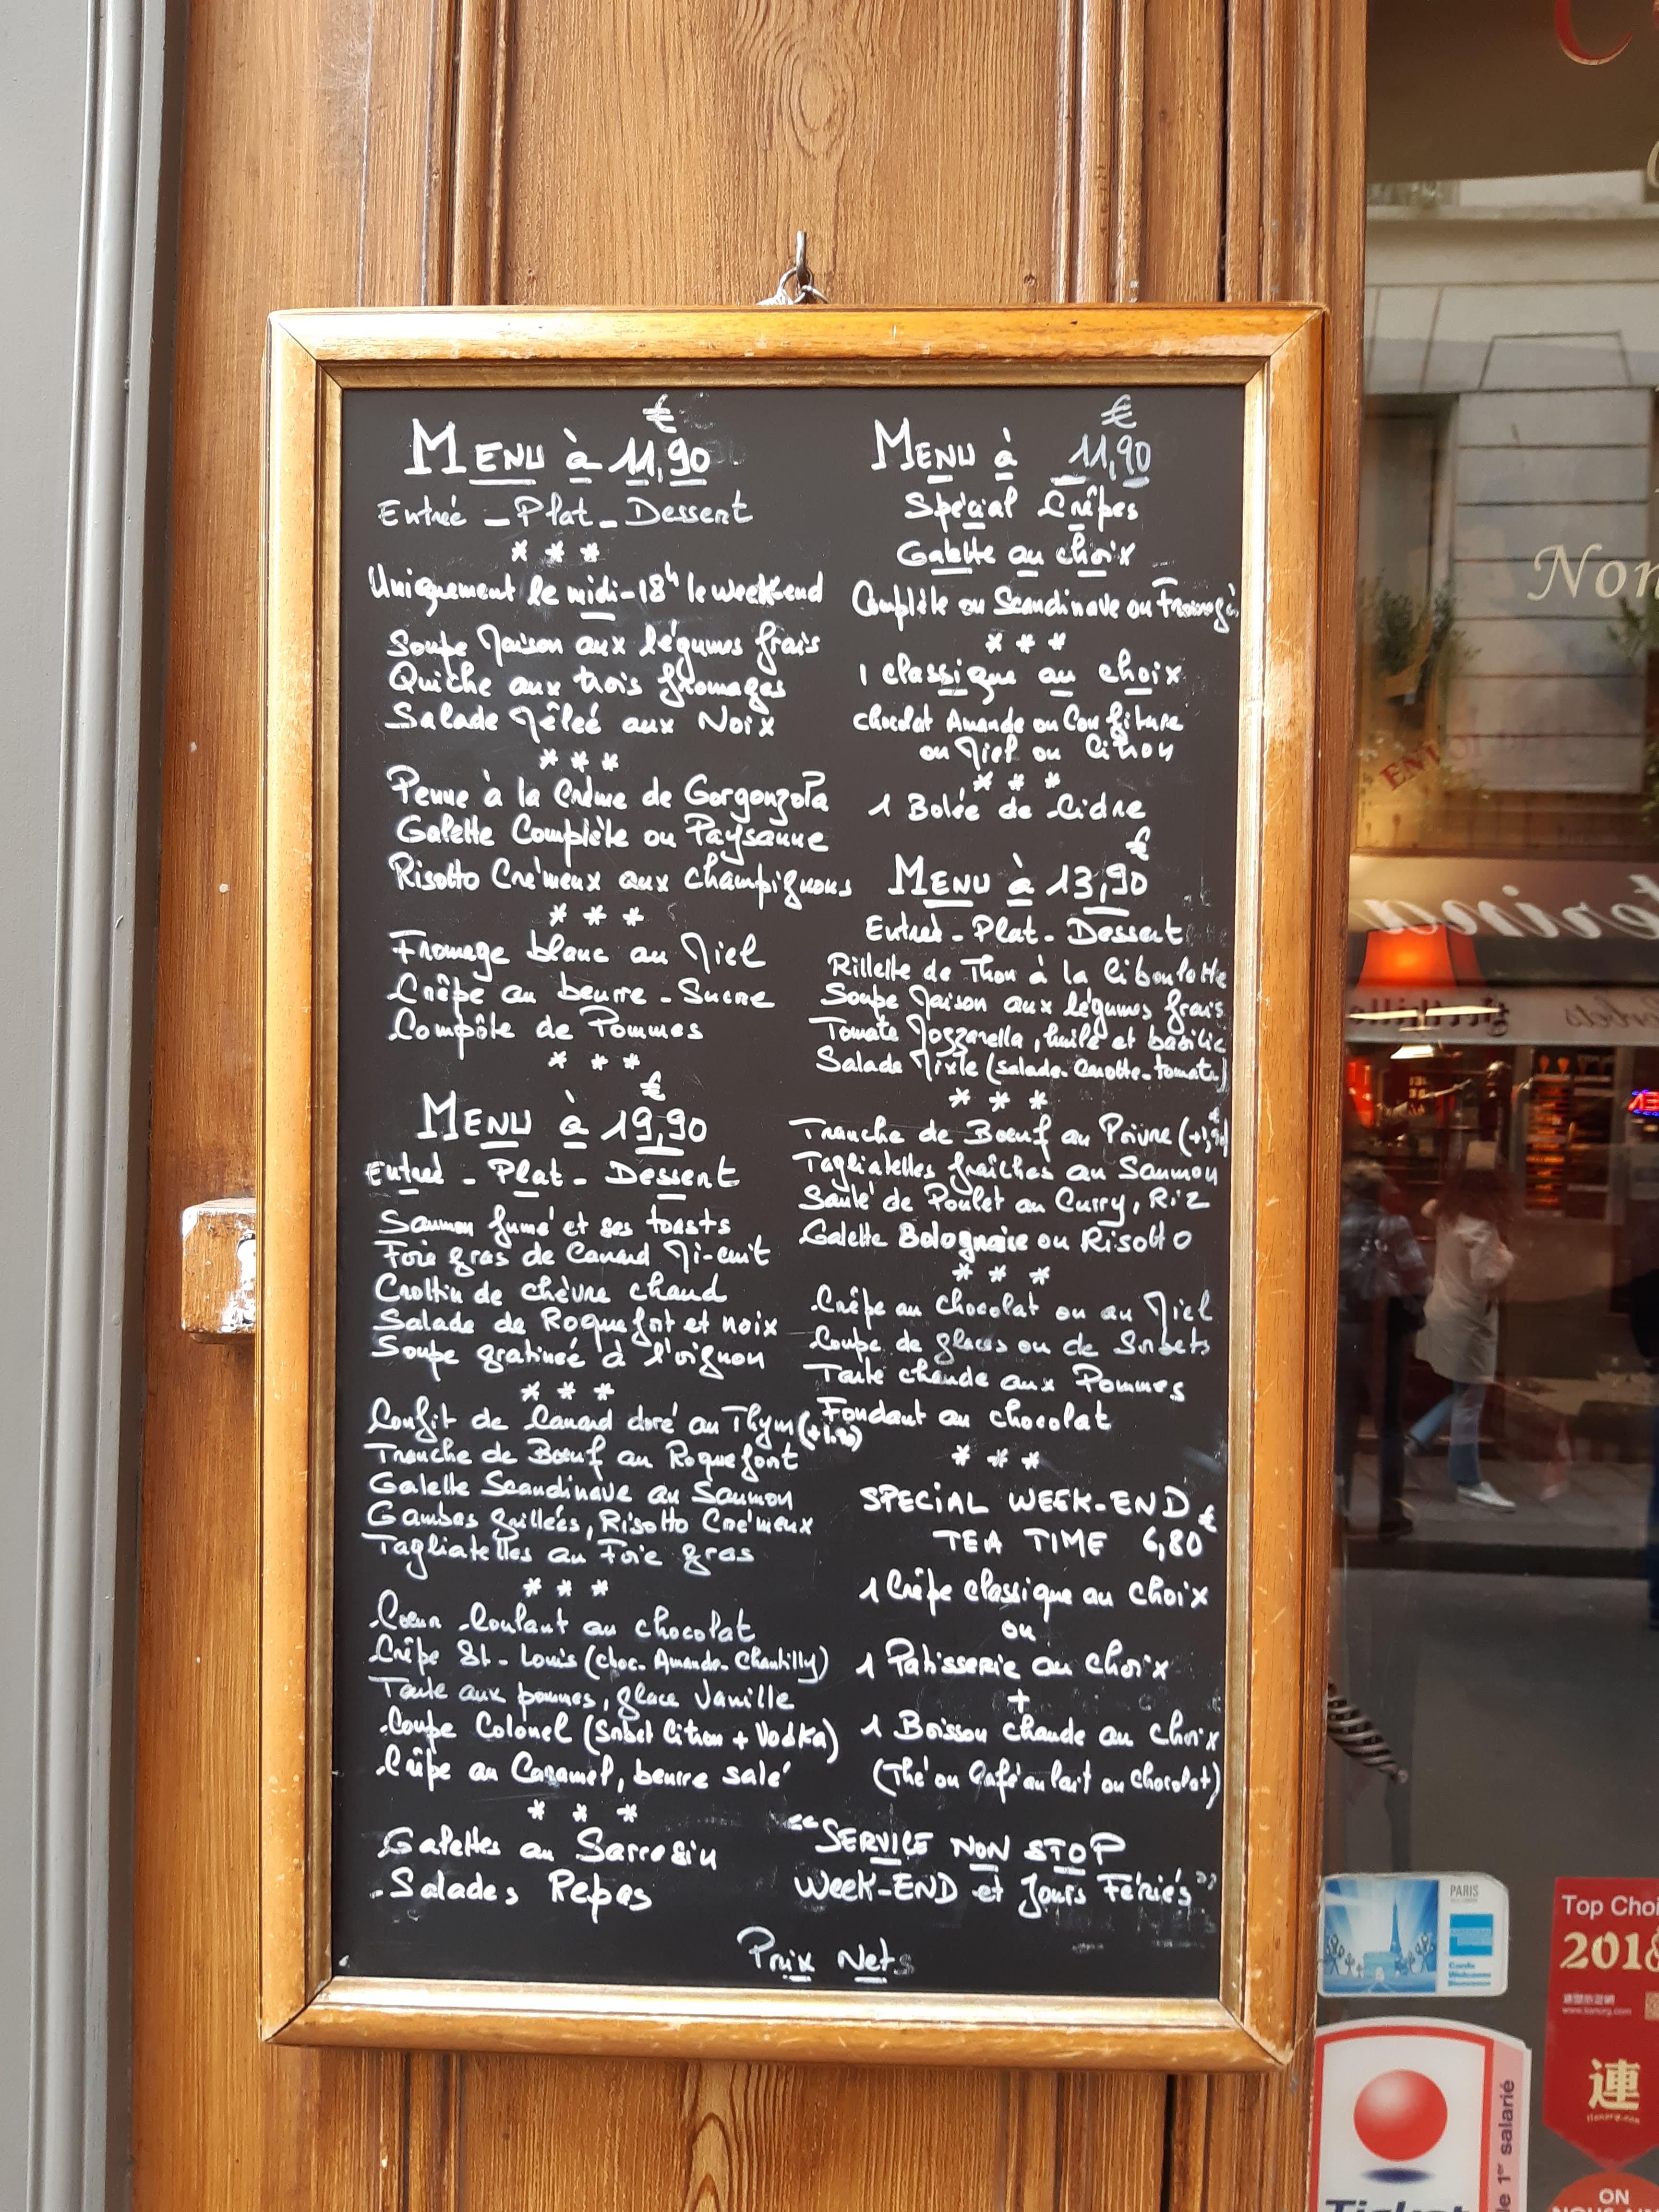 MENU à 11,90 €
Entrée - Plat - Dessert
* * *
Uniquement le midi - 18h le week-end
Soupe Maison aux légumes frais
Quiche aux trois fromages
Salade Mêleé aux Noix
* * *
Penne à la Crème de Gorgonzola
Galette Complète ou Paysanne
Risotto Crémeux aux champignons
* * *
Fromage blanc au Miel
Crêpe au beurre - Sucre
Compôte de Pommes
* * *
MENU à 19,90 €
Entreé - Plat - Dessert
Saumon fumé et ses toasts
Foie gras de Canard Mi-cuit
Crottin de chèvre chaud
Salade de Roquefort et noix
Soupe gratineé à l'oignon
* * *
Confit de Canard doré au Thym (+1.90)
Tranche de Bœuf au Roquefort
Galette Scandinave au Saumon
Gambas grillées, Risotto Crémeux
Tagliatelles au Foie gras
* * *
Cœur Coulant au chocolat
Crêpe St-Louis (choc. Amande. Chantilly)
Tarte aux pommes, glace Vanille
Coupe Colonel (Sorbet Citron + Vodka)
Crêpe au Caramel, beurre salé
* * *
Galettes au Sarrasin
Salades Repas
MENU à 11,90 €
Spécial Crêpes
Galette au choix
Complète ou Scandinave ou Fromage
* * *
1 classique au choix
chocolat Amande ou Confiture
ou Miel ou Citron
* * *
1 Bolée de Cidre
MENU à 13,90 €
Entreé - Plat - Dessert
Rillette de Thon à la Ciboulette
Soupe Maison aux légumes frais
Tomate Mozzarella, huile et basilic
Salade Mixte (salade-carotte-tomate)
* * *
Tranche de Bœuf au Poivre (+1,90€)
Tagliatelles fraîches au Saumon
Sauté de Poulet au Curry, Riz
Galette Bolognaise ou Risotto
* * *
Crêpe au chocolat ou au Miel
Coupe de glaces ou de Sorbets
Tarte chaude aux Pommes
Fondant au chocolat
* * *
SPECIAL WEEK-END
TEA TIME 6,80 €
1 Crêpe classique au choix
ou
1 Patisserie au choix
+
1 Boisson chaude au choix
(Thé ou Café au lait ou chocolat)
"SERVICE NON STOP
WEEK-END et Jours Fériés"
Prix Nets
Non
PARIS
Cards
Welcomes
Bienvenue
Top Choi
2018
連
de 1er salarié
Ticket
ON
NOUS AIM